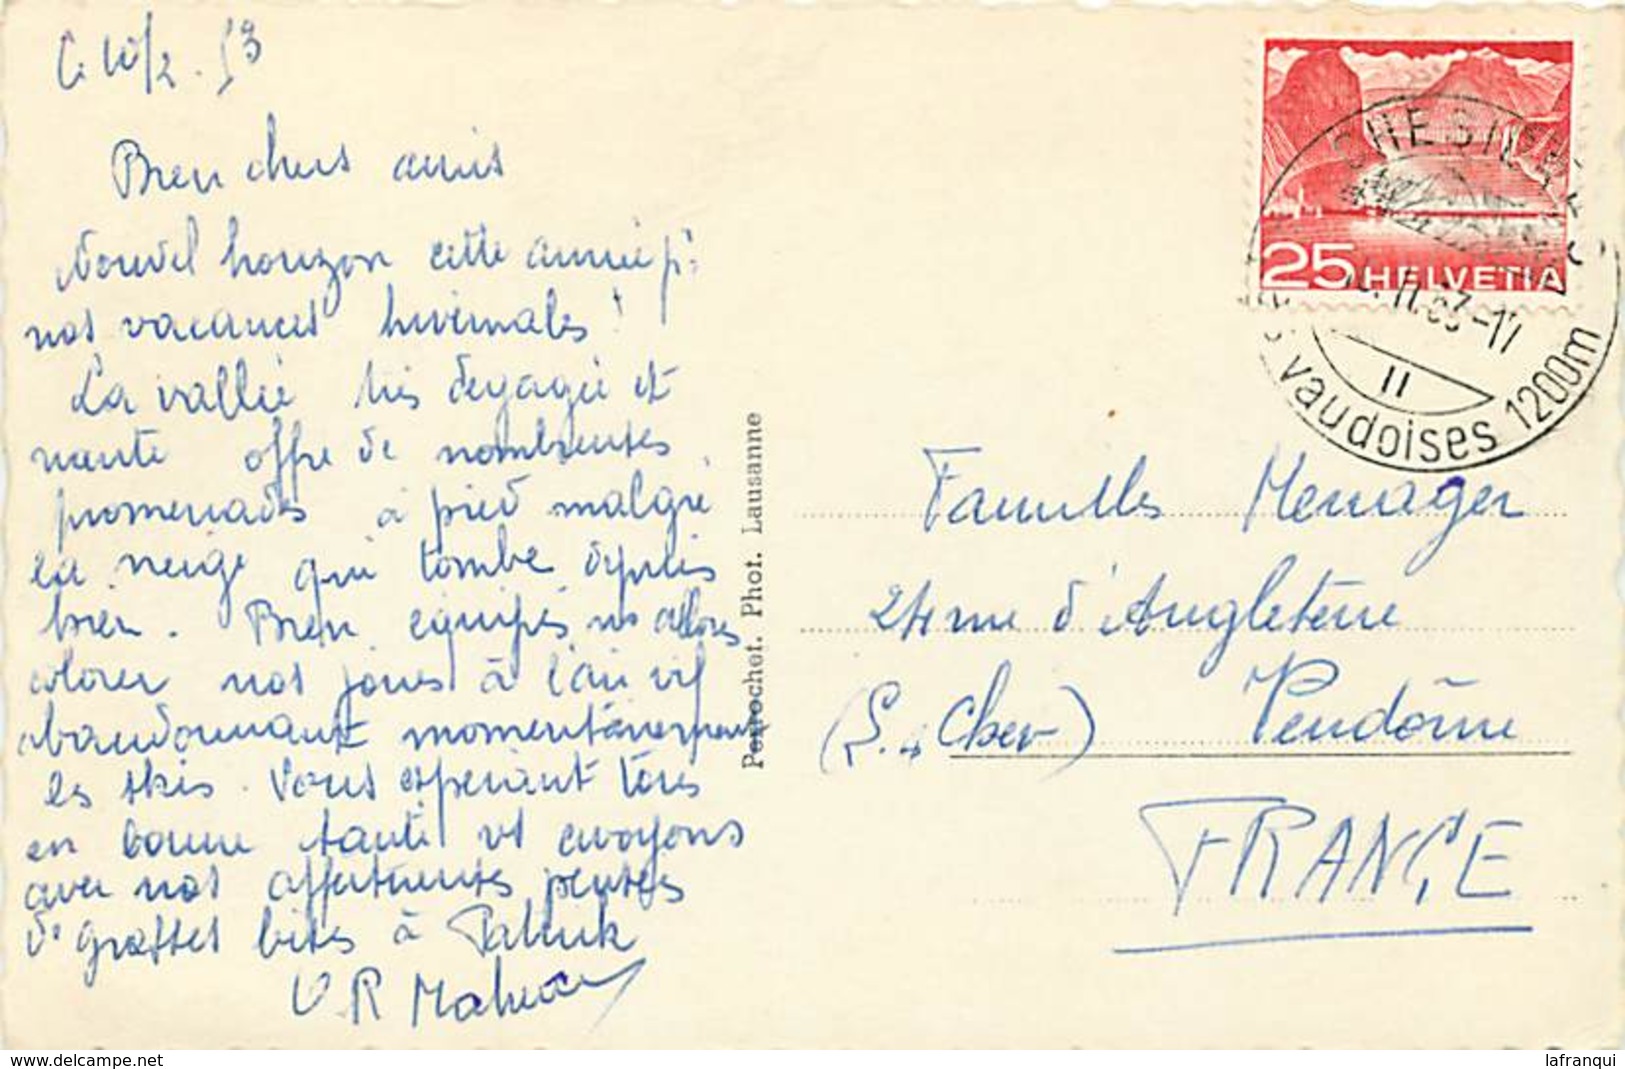 10/2.53
Bien chers amis
Nouvel horizon cette année pr
nos vacances hivernales!
La vallée très dégagée et
riante offre de nombreuses
promenades à pied malgré
la neige qui tombe depuis
hier. Bien équipés ns allons
colorer nos joues à l'air vif
abandonnant momentanément
les skis. Vous espérant tous
en bonne santé vs envoyons
avec nos affectueuses pensées
de grosses bises à Patrick
V R
Perrochet. Phot. Lausanne
25 HELVETIA
CHESIÈRES
vaudoises 1200m
II
Famille Menager
24 rue d'Angleterre
(L. & Cher) Vendôme
FRANCE
delcampe.net
lafranqui